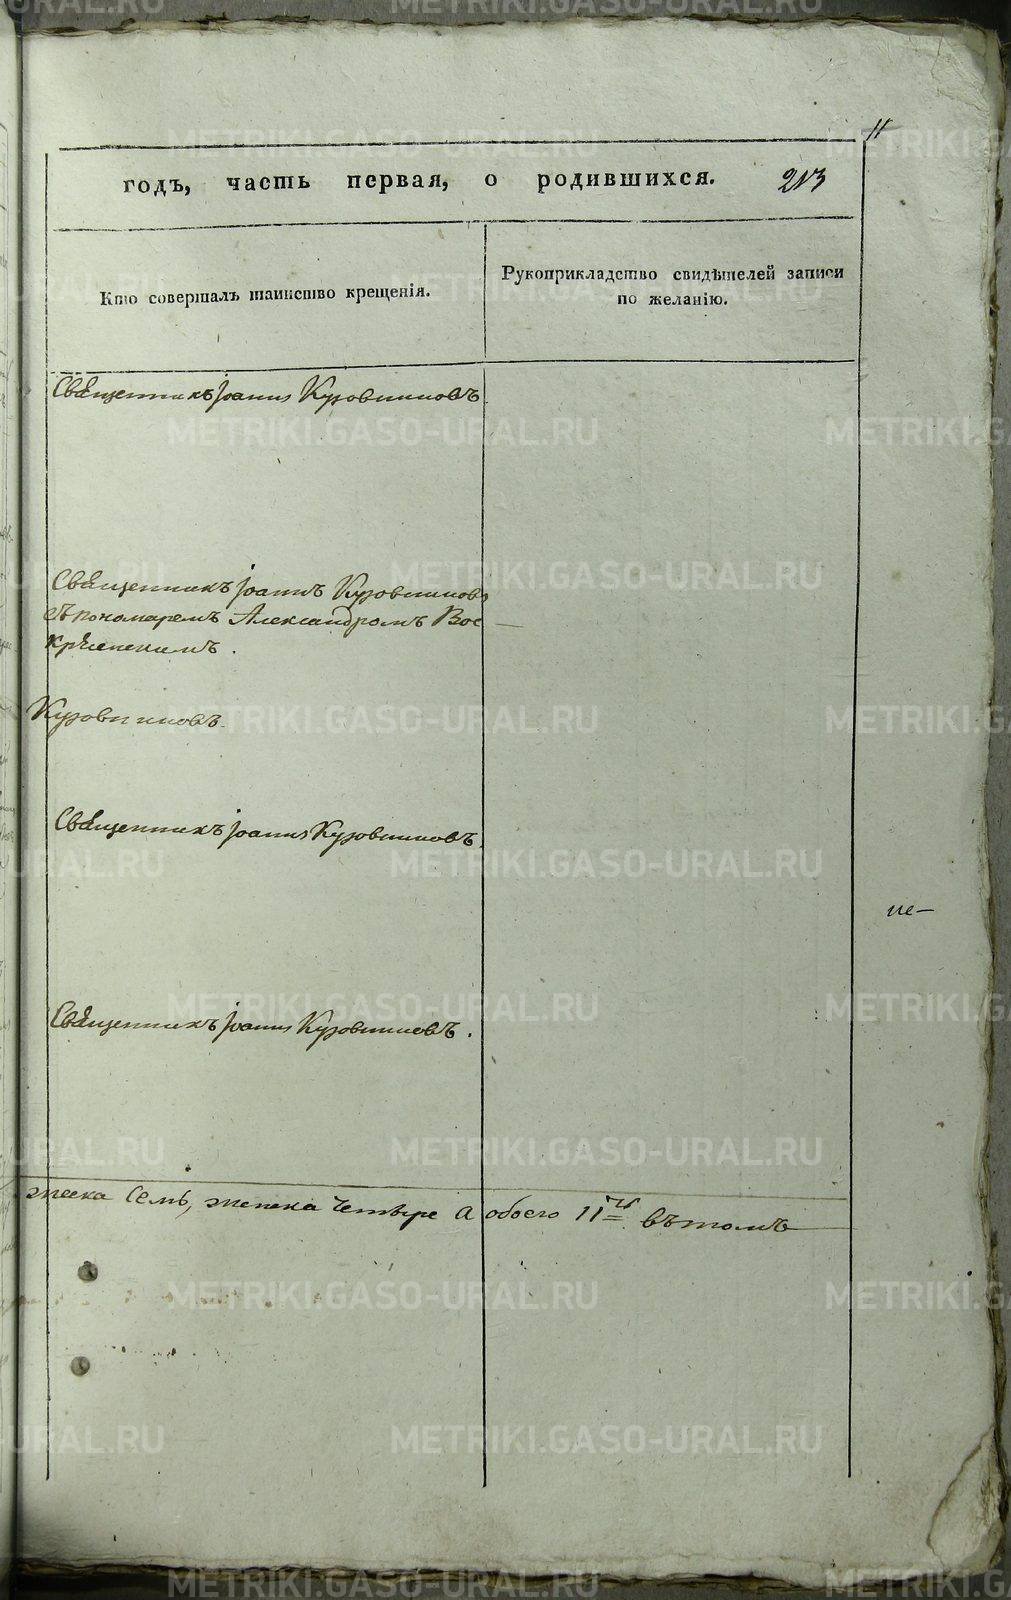 11
годъ, часть первая, о родившихся. 213
Кто совершалъ таинство крещенія.
Рукоприкладство свидѣтелей записи
по желанію.
Священникъ Іоаннъ Кузовниковъ
Священникъ Іоаннъ Кузовниковъ
съ пономаремъ Александромъ Вос
кресенскимъ.
Кузовниковъ.
Священникъ Іоаннъ Кузовниковъ.
не—
Священникъ Іоаннъ Кузовниковъ.
жеска семь, женска четыре а обоего 11ть въ томъ
METRIKI.GASO-URAL.RU